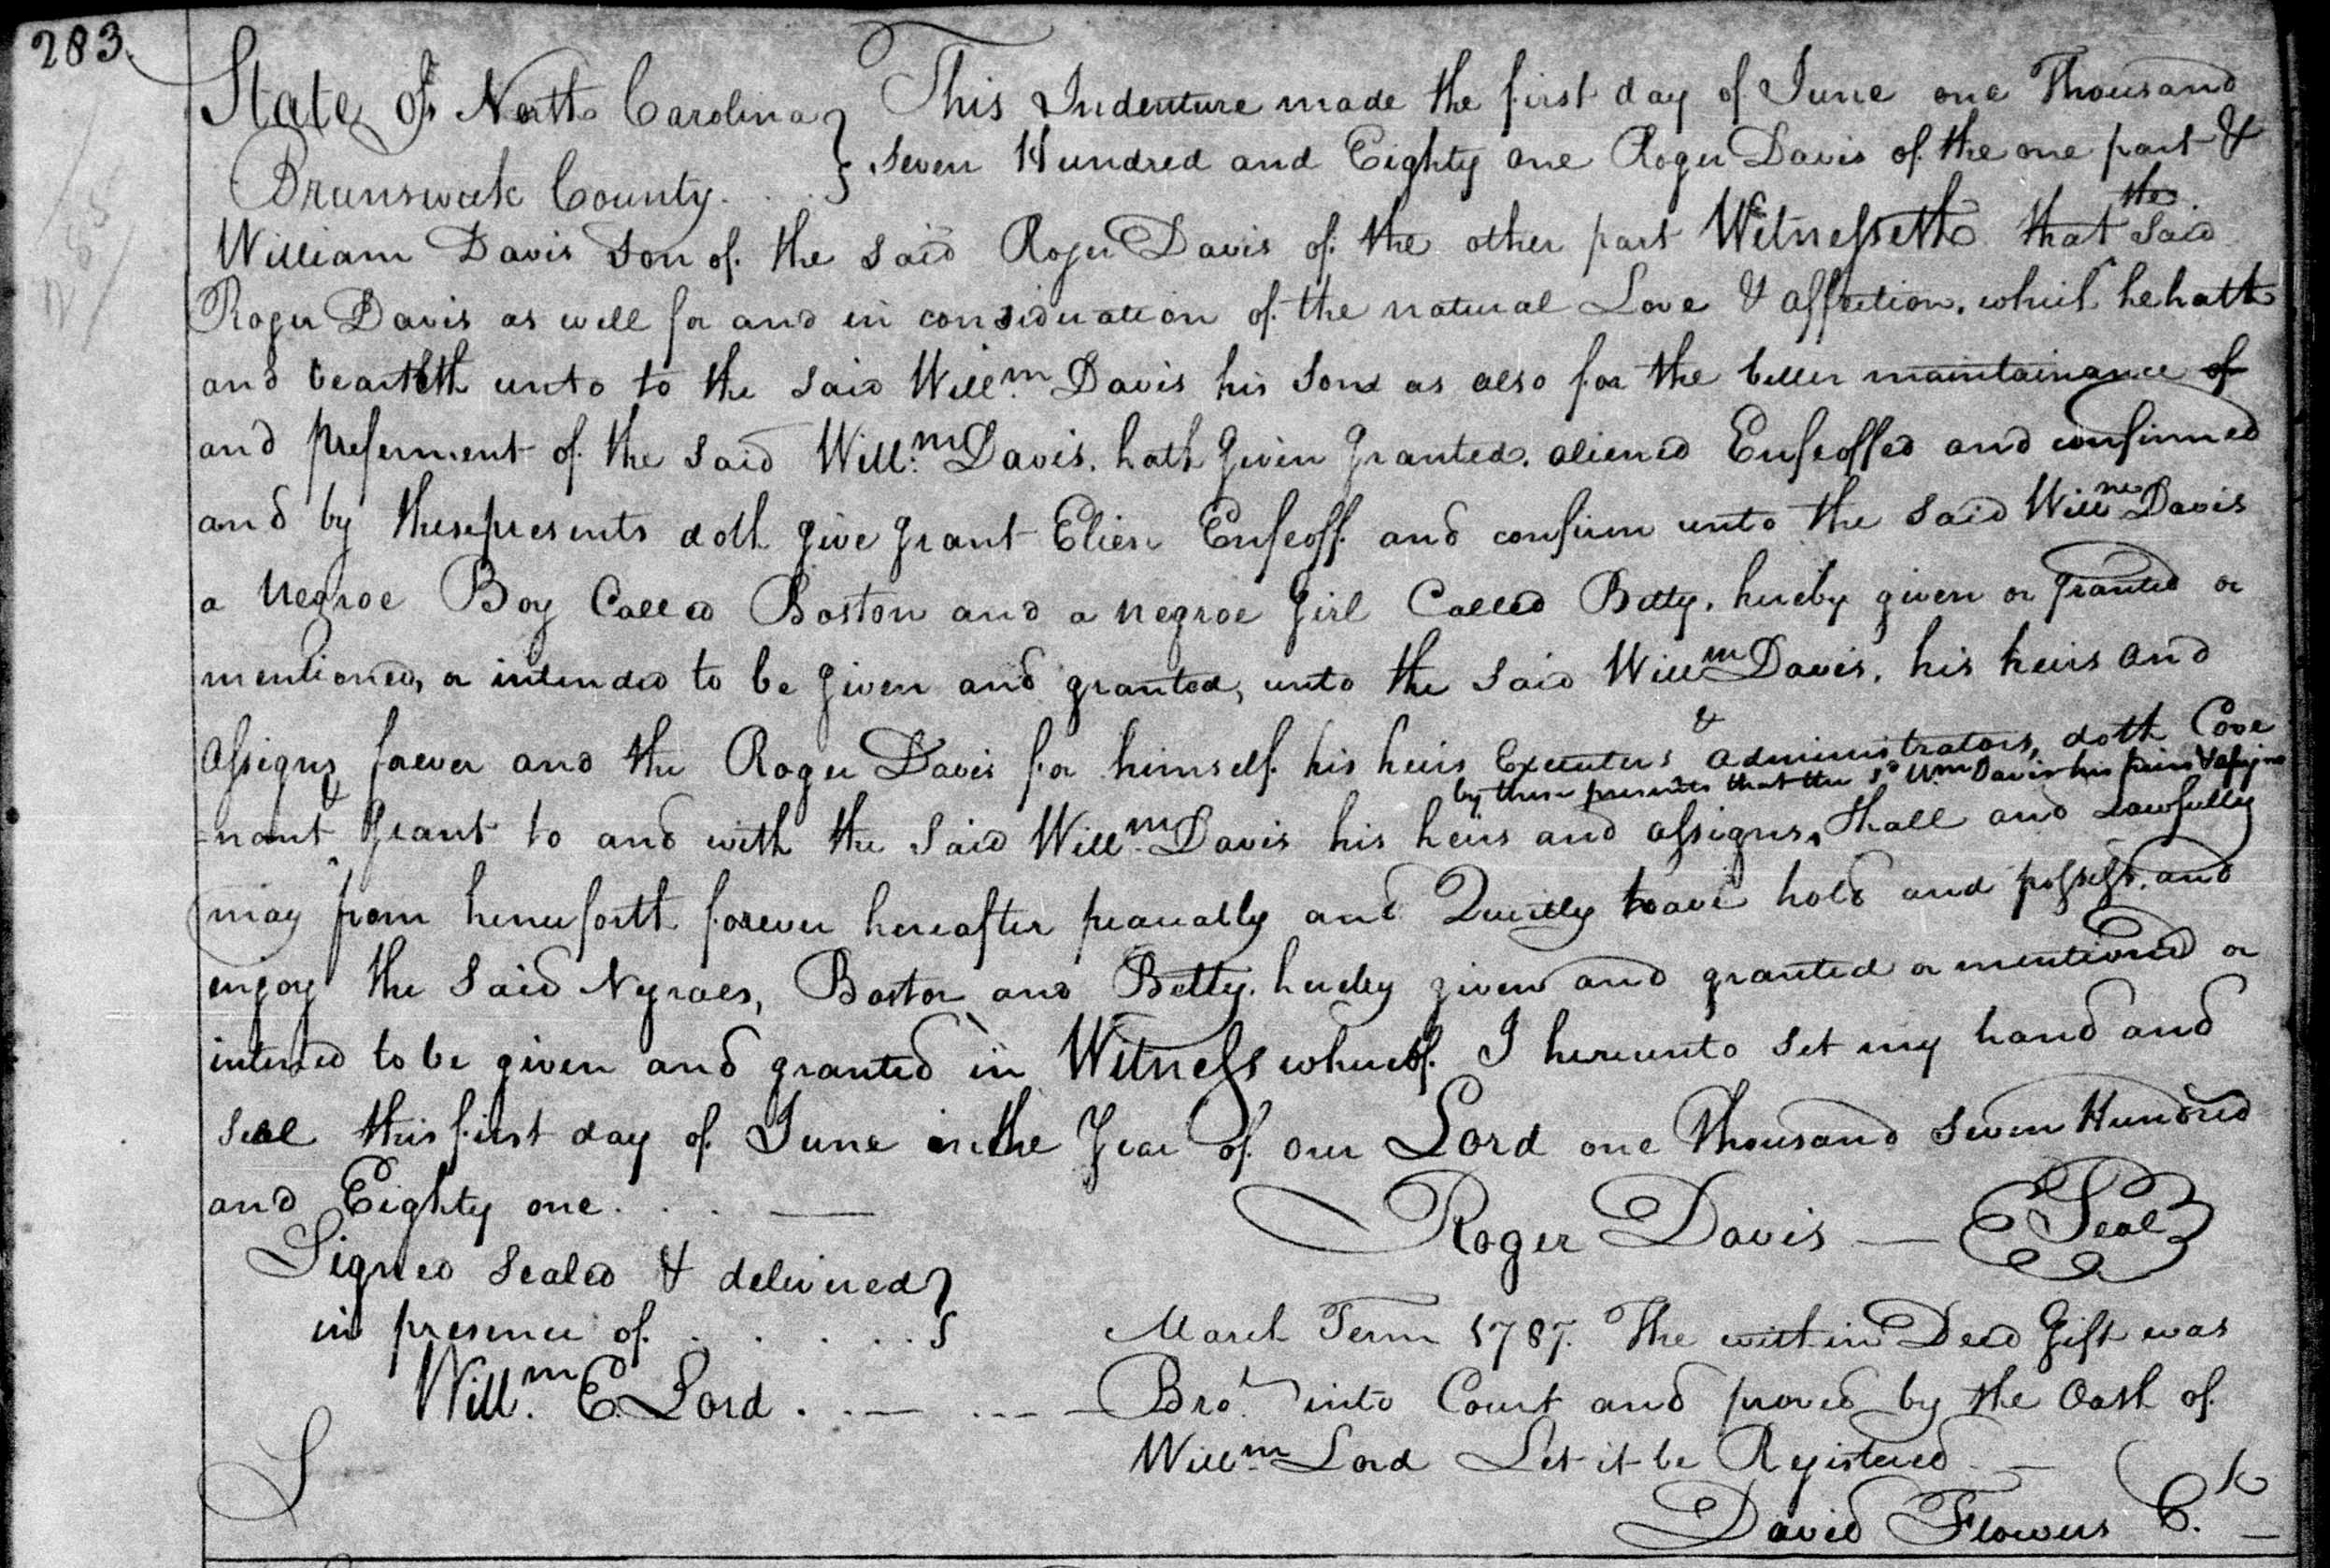 283.
State of North Carolina } This Indenture made the first day of June one Thousand
Brunswick County. . . } Seven Hundred and Eighty one Roger Davis of the one part &
William Davis Son of the Said Roger Davis of the other part Witnesseth that the Said
Roger Davis as well for and in consideration of the natural Love & affection. which he hath
and beareth unto to the Said Willm Davis his Son as also for the better maintainance of
and preferment of the Said Willm Davis. hath Given Granted. aliened Enfeoffed and confirmed
and by these presents doth give grant Elien Enfeoff and confirm unto the Said Willm Davis
a Negroe Boy Called Boston and a negroe Girl Called Betty. hereby given or granted or
mentioned, or intended to be given and granted, unto the Said Willm Davis, his heirs and
assigns forever and the Roger Davis for himself his heirs Executers & administrators, doth Cove
by these presents that the sd Wm Davis his heirs & assigns
-nant & Grant to and with the Said Willm Davis his heirs and assigns, Shall and Lawfully
may from henceforth forever hereafter peaceably and Quietly have hold and possess. and
enjoy the Said Negroes, Boston and Betty. hereby given and granted or mentioned or
intended to be given and granted in Witness whereof. I hereunto Set my hand and
Seal this first day of June in the Year of our Lord one Thousand Seven Hundred
and Eighty one. . . —
Roger Davis — Seal
Signed Sealed & delivered }
in presence of. . . . . . }
Willm E. Lord . . — - - -
March Term 1787. The within Deed Gift was
Brot into Court and proved by the Oath of
Willm Lord Let it be Registered —
David Flowers Ck